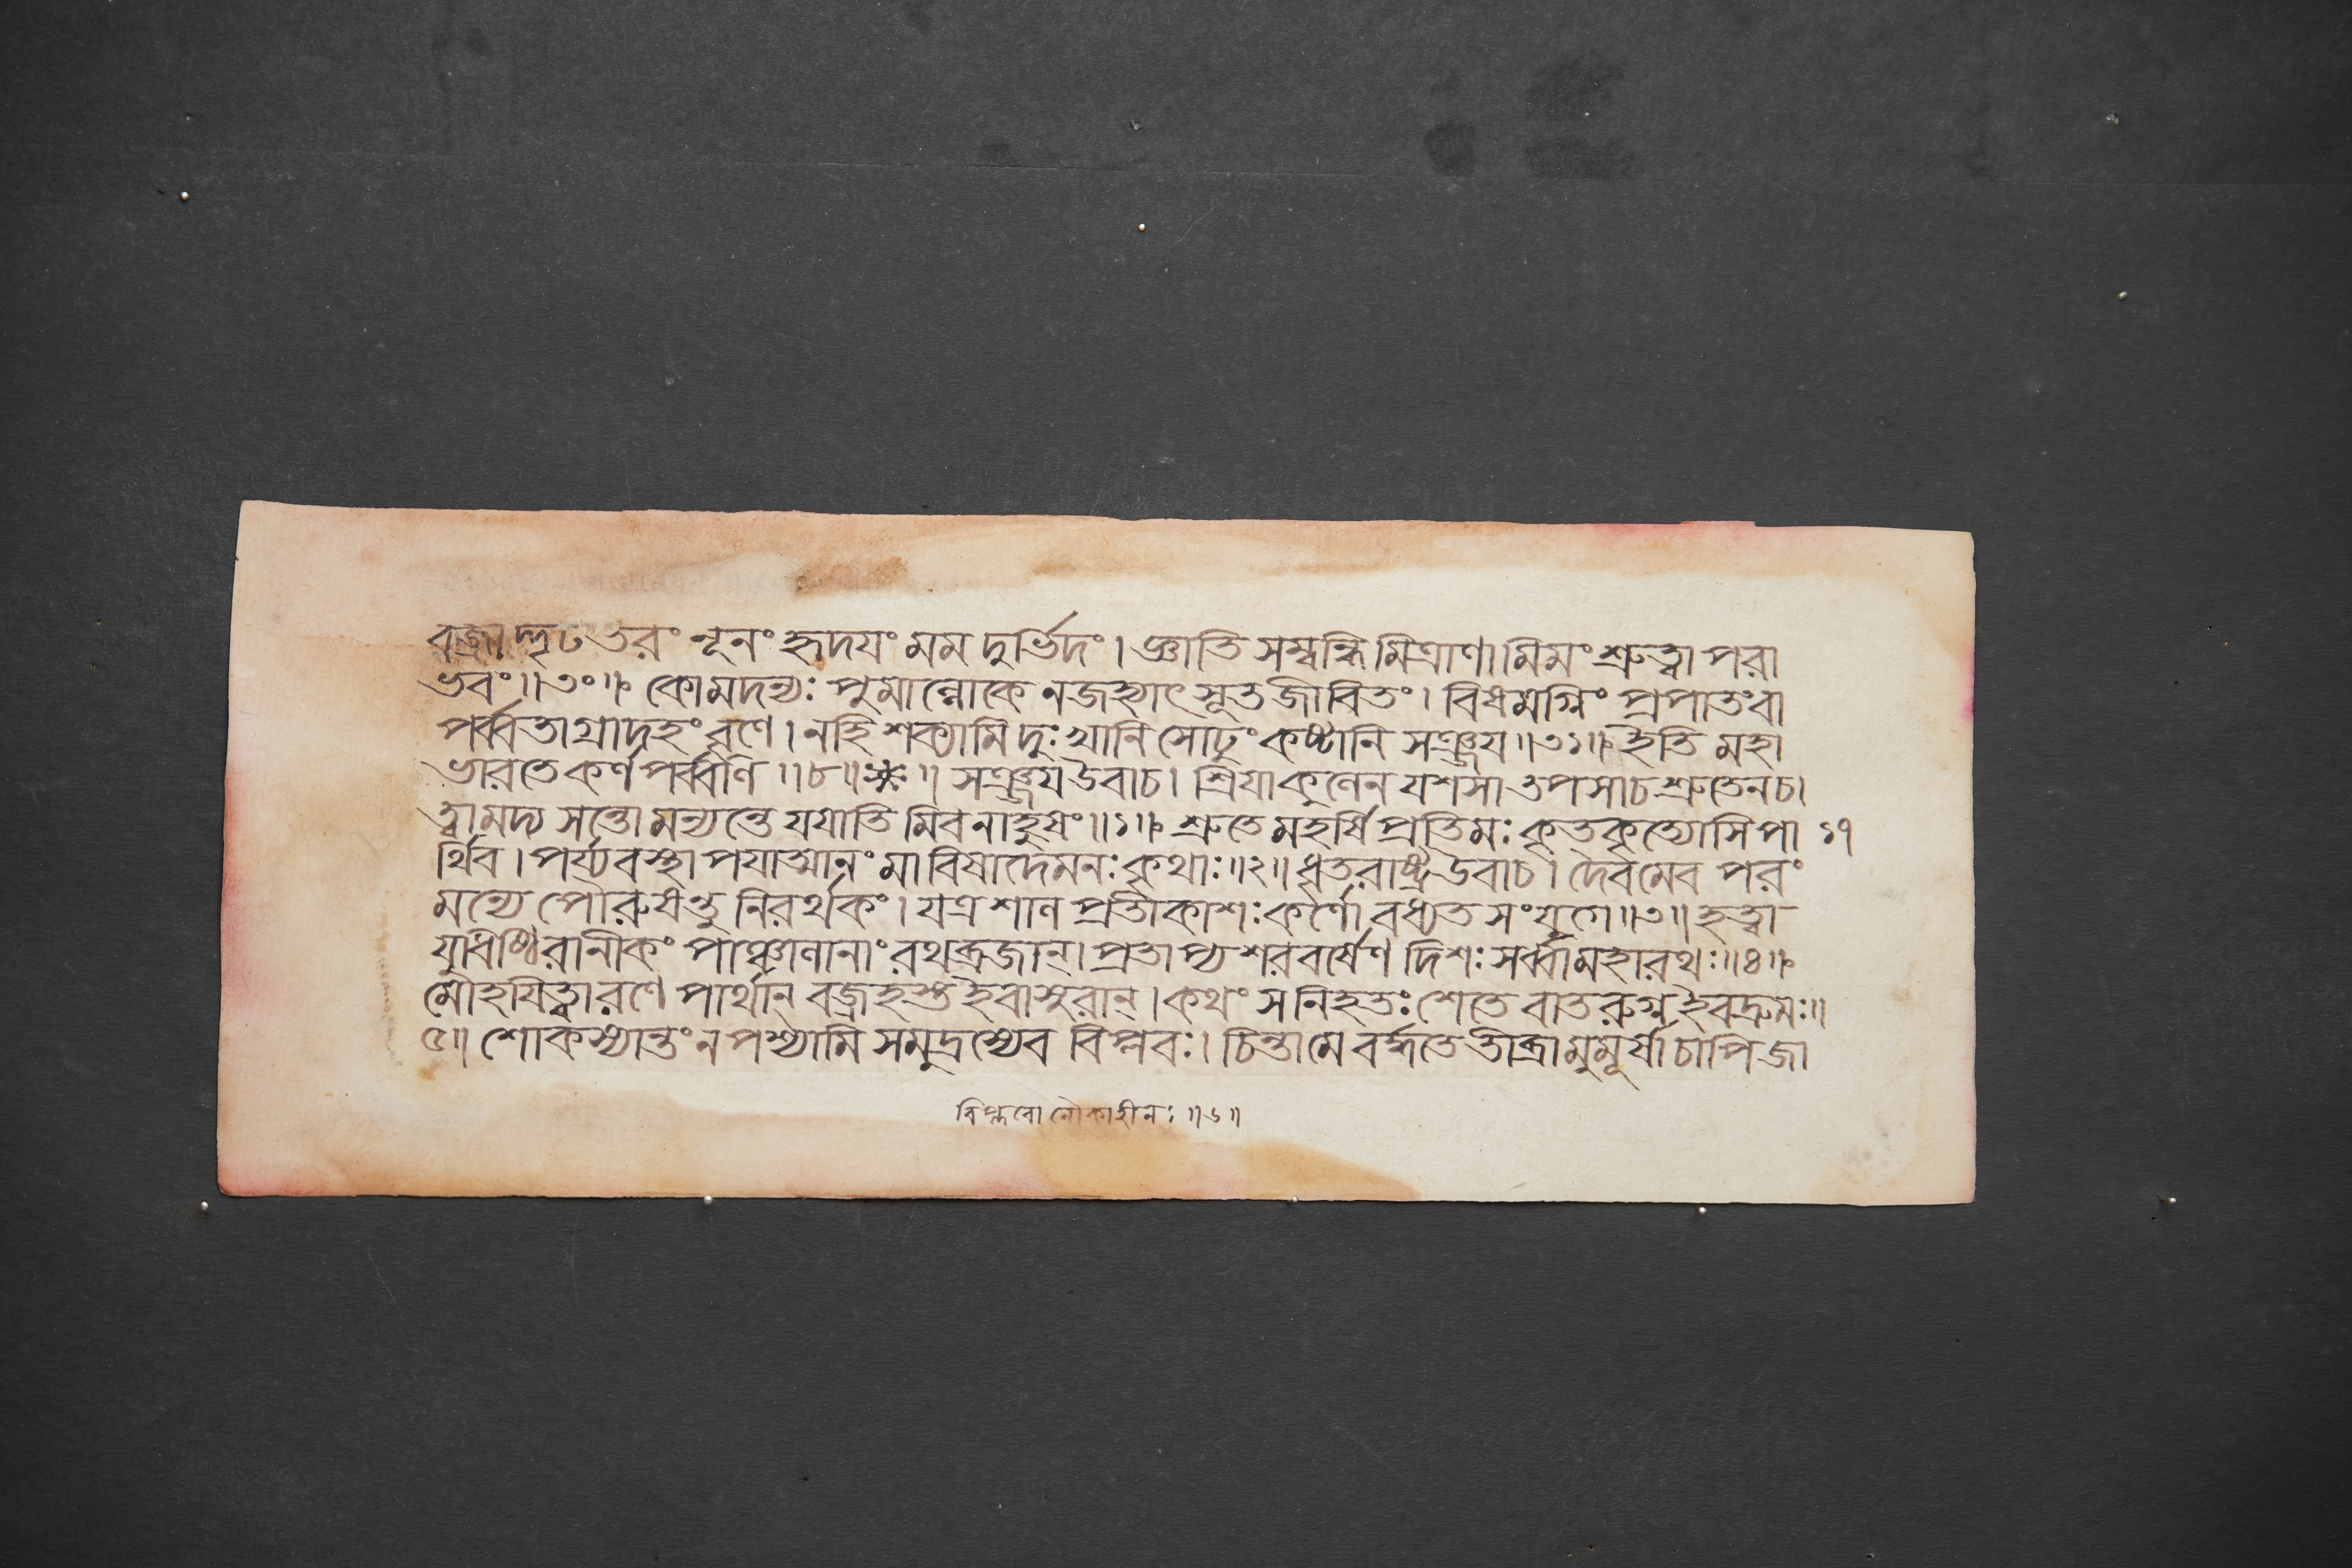 বজ্রাদ্দৃঢতরং নূনং হৃদযং মম দুর্ভিদং। জ্ঞাতি সম্বন্ধি মিত্রাণামিমং শ্রুত্বা পরা
ভবং॥৩০॥ কোমদন্যঃ পুমাল্লোকে নজহ্যাৎ সূতজীবিতং। বিষমগ্নিং প্রপাতংবা
পর্ব্বতাগ্রাদহং বৃণে। নহি শক্ষ্যামি দুঃখানি সোঢুং কষ্টানি সঞ্জয॥৩১॥ ইতি মহা
ভারতে কর্ণ পর্ব্বণি ॥৮॥ ॥ সঞ্জয উবাচ। শ্রিযাকুলেন যশসা তপসাচ শ্রুতেনচ।
ত্বামদ্য সন্তো মন্যন্তে যযাতি মিবনাহুষং॥১॥ শ্রুতে মহর্ষি প্রতিমঃ কৃতকৃত্যোসি পা ১৭
র্থিব। পর্য্যবস্থাপযাত্মানং মাবিষাদেমনঃ কৃথাঃ॥২॥ ধৃতরাষ্ট্র উবাচ। দৈবমেব পরং
মন্যে পৌরুষন্তু নিরর্থকং। যত্র শাল প্রতীকাশঃ কর্ণো বধ্যত সংযুগে॥৩॥ হত্বা
যুধিষ্ঠিরানীকং পাঞ্চালানাং রথব্রজান্। প্রতাপ্য শরবর্ষেণ দিশঃ সর্ব্বামহারথঃ॥৪॥
মোহযিত্বা রণে পার্থান্ বজ্রহস্ত ইবাসুরান্। কথং স নিহতঃ শেতে বাতরুগ্ন ইবদ্রুমঃ॥
৫॥ শোকস্যান্তং ন পশ্যামি সমুদ্রস্যেব বিপ্লবঃ। চিন্তামে বর্দ্ধতে তীব্রা মুমূর্ষাচাপি জা
বিপ্লবো নৌকাহীনঃ ॥৬॥